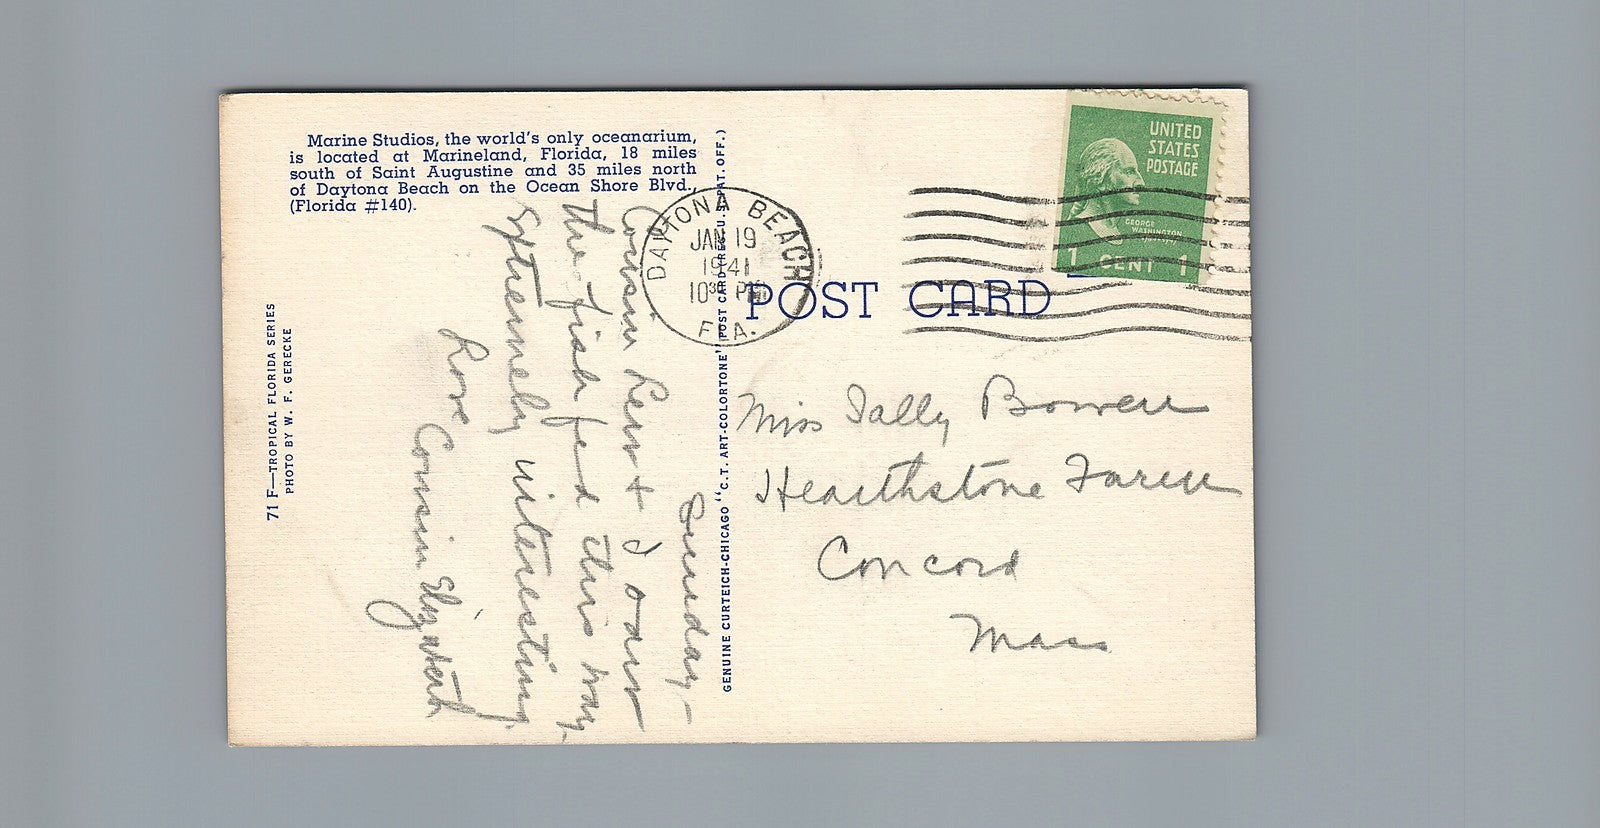 Marine Studios, the world's only oceanarium,
is located at Marineland, Florida, 18 miles
south of Saint Augustine and 35 miles north
of Daytona Beach on the Ocean Shore Blvd.,
(Florida #140).
71 F—TROPICAL FLORIDA SERIES
PHOTO BY W. F. GERECKE
Sunday—
Cousin & I saw
the fish fed this way,
interesting.
Love
Cousin Elizabeth
GENUINE CURTEICH-CHICAGO "C.T. ART-COLORTONE" POST CARD (REG. U.S. PAT. OFF.)
DAYTONA BEACH
JAN 19
1941
10 30 PM
FLA.
POST CARD
UNITED
STATES
POSTAGE
GEORGE
WASHINGTON
1 CENT 1
Miss Sally Bowen
Hearthstone Farm
Concord
Mass